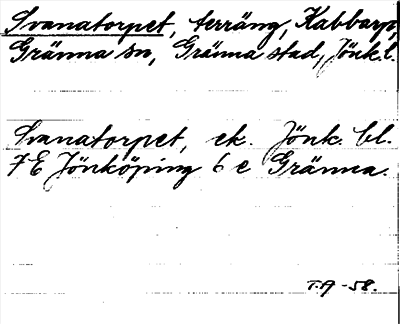 Svanatorpet, terräng, Kabbarp,
Gränna sn, Gränna stad, Jönk. l.
Svanatorpet, ek. Jönk. bl.
7E Jönköping 6 e Gränna.
T.A -58.